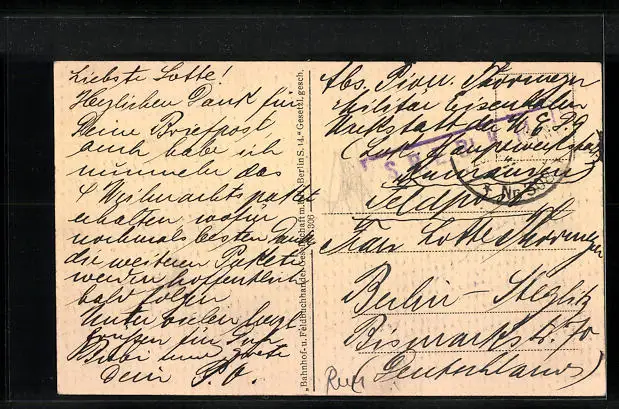 Liebste Lotte!
Herzlichen Dank für
Deine Briefpost,
auch habe ich
nunmehr das
4 Weihnachtspaket
erhalten wofür
nochmals besten Dank
die weiteren Pakete
werden hoffentlich
bald folgen
Unter vielen herzl.
Grüssen für Dich
Bubi und Grete
Dein
"Bahnhof- u. Feldbuchhandel-Gesellschaft m. Berlin S. 14." Gesetzl. gesch.
306
Abs. Pion.
Militär Eisenbahn
Werkstatt
(Hauptwerkstatt)
Rumänien
Feldpost
Frau Lotte
Berlin-Steglitz
Bismarckstr. 70
(Deutschland)
Rum